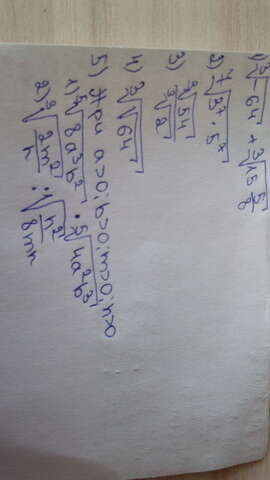 1) ∛-64 + ∛15 5/8
2) ⁷√3⁷ · 5⁷
3) ∛54 / ∛2
4) ∛√64
5) При a>0; b>0; m>0; n>0
1) ⁵√8a³b² · ⁵√4a²b³
2) ∛2m²/n : ∛n²/8mn